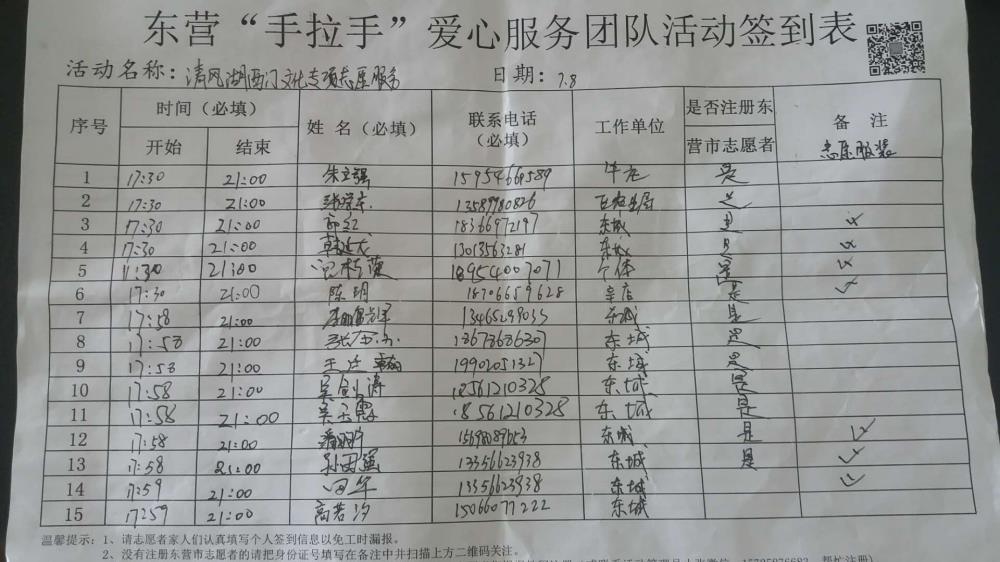 东营“手拉手”爱心服务团队活动签到表
活动名称：清风湖西门文化专项志愿服务 日期：7.8
序号 时间（必填） 姓名（必填） 联系电话（必填） 工作单位 是否注册东营市志愿者 备注
开始 结束 志愿服装
1 17:30 21:00 朱立强 15954669589 是
2 17:30 21:00 13589980826
3 17:30 21:00 18366972197 东城
4 17:30 21:00 13013563281 东城
5 21:00 18954007071 个体 是
6 17:30 21:00 陈玥 18706659628 辛店 是
7 17:58 21:00 东城 是
8 17:58 21:00 东城 是
9 17:58 21:00 19902051327 东城 是
10 17:58 21:00 吴剑涛 18561210328 东城 是
11 17:58 21:00 18561210328 东城 是
12 17:58 21:00 东城 是
13 17:58 21:00 13356623938 东城 是
14 17:59 21:00 13356623938 东城
15 17:59 21:00 高若汐 15066077222 东城
温馨提示：1、请志愿者家人们认真填写个人签到信息以免工时漏报。
2、没有注册东营市志愿者的请把身份证号填写在备注中并扫描上方二维码关注。